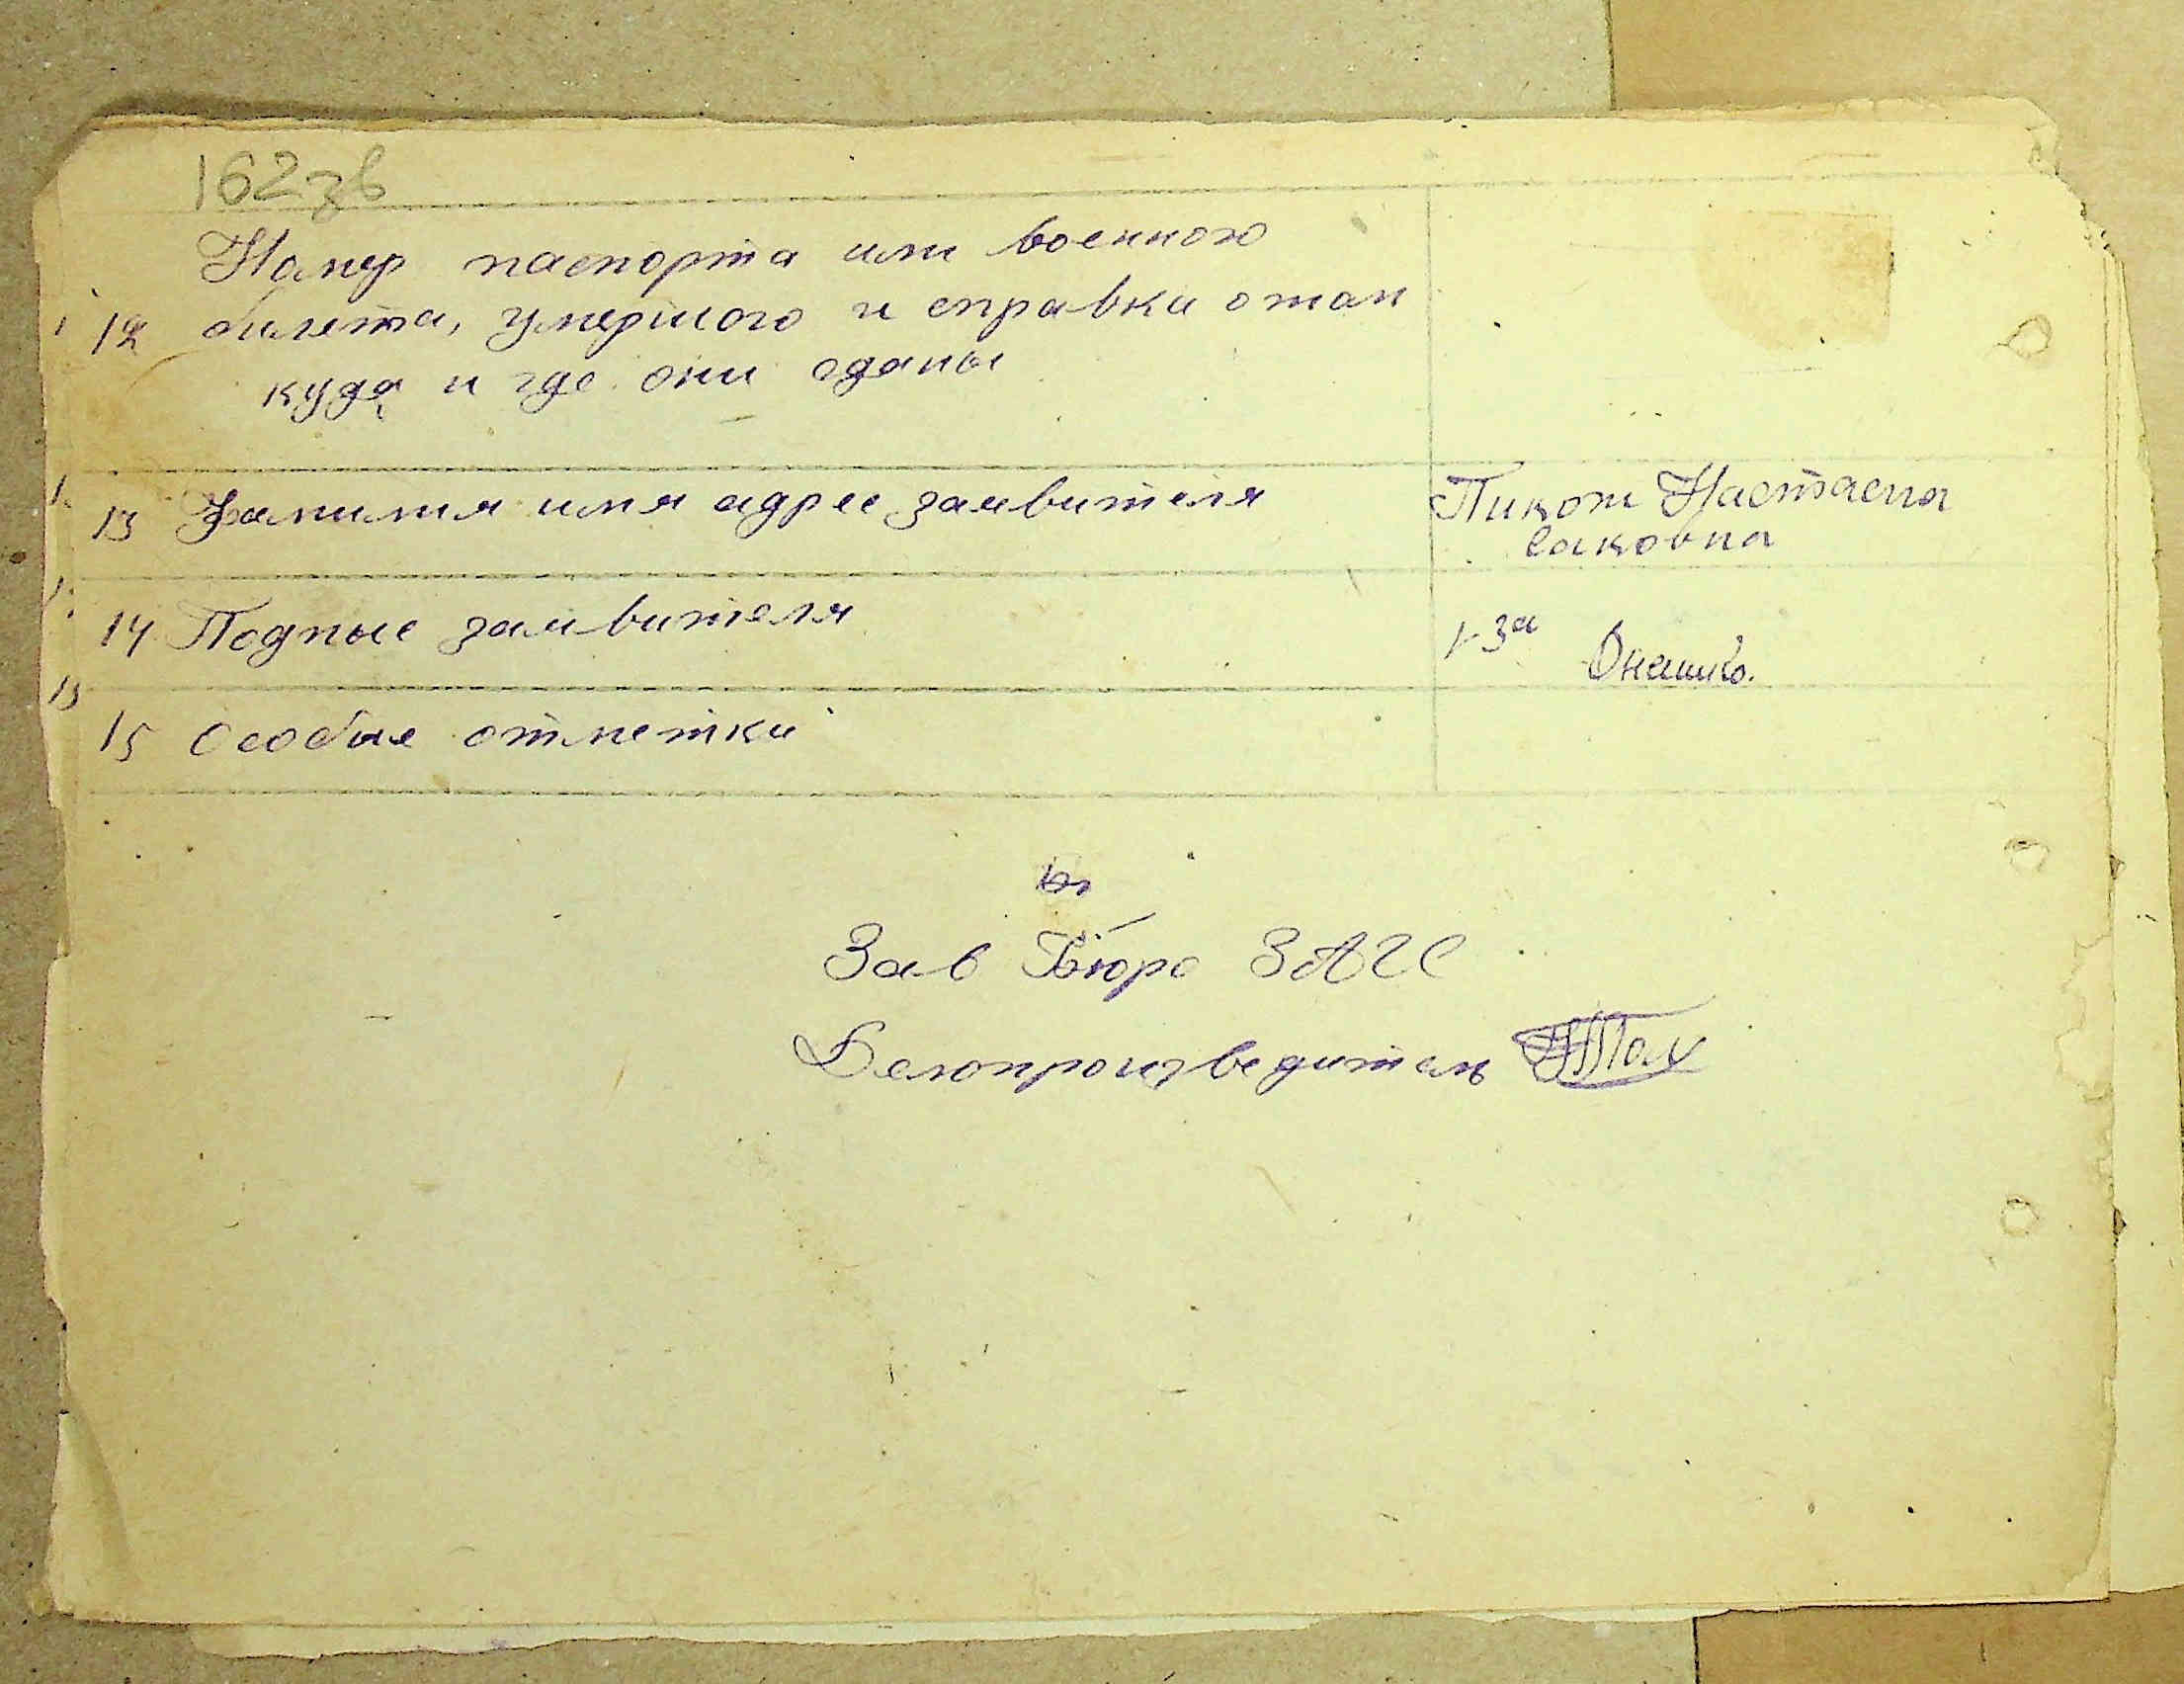 162зв
Номер паспорта или военного
12 билета, умершого и справки о том
куда и где они сданы
13 Фамилия имя адрес заявителя Пикот Настасья
Саковна
14 Подпис заявителя за
15 Особые отметки
Зав Бюро ЗАГС
Делопроизводитель